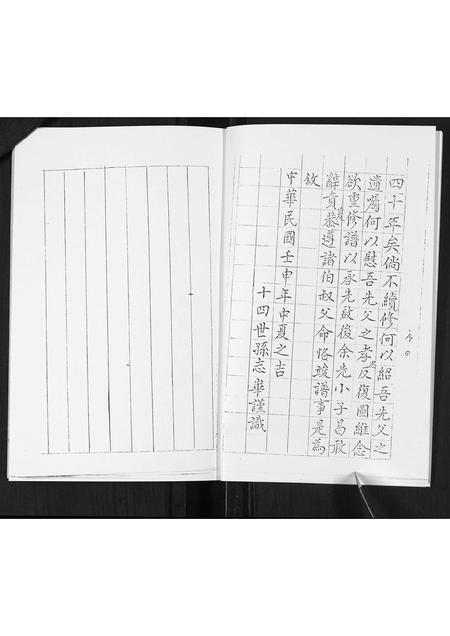 四十年矣倘不續修何以紹吾先父之
遺囑何以慰吾先父之孝思反復圖維念
欲重修譜以承先啟後余先小子曷敢
辭責爰恭遵諸伯叔父命恪竣譜事是為
敘
中華民國壬申年中夏之吉
十四世孫志舉謹識